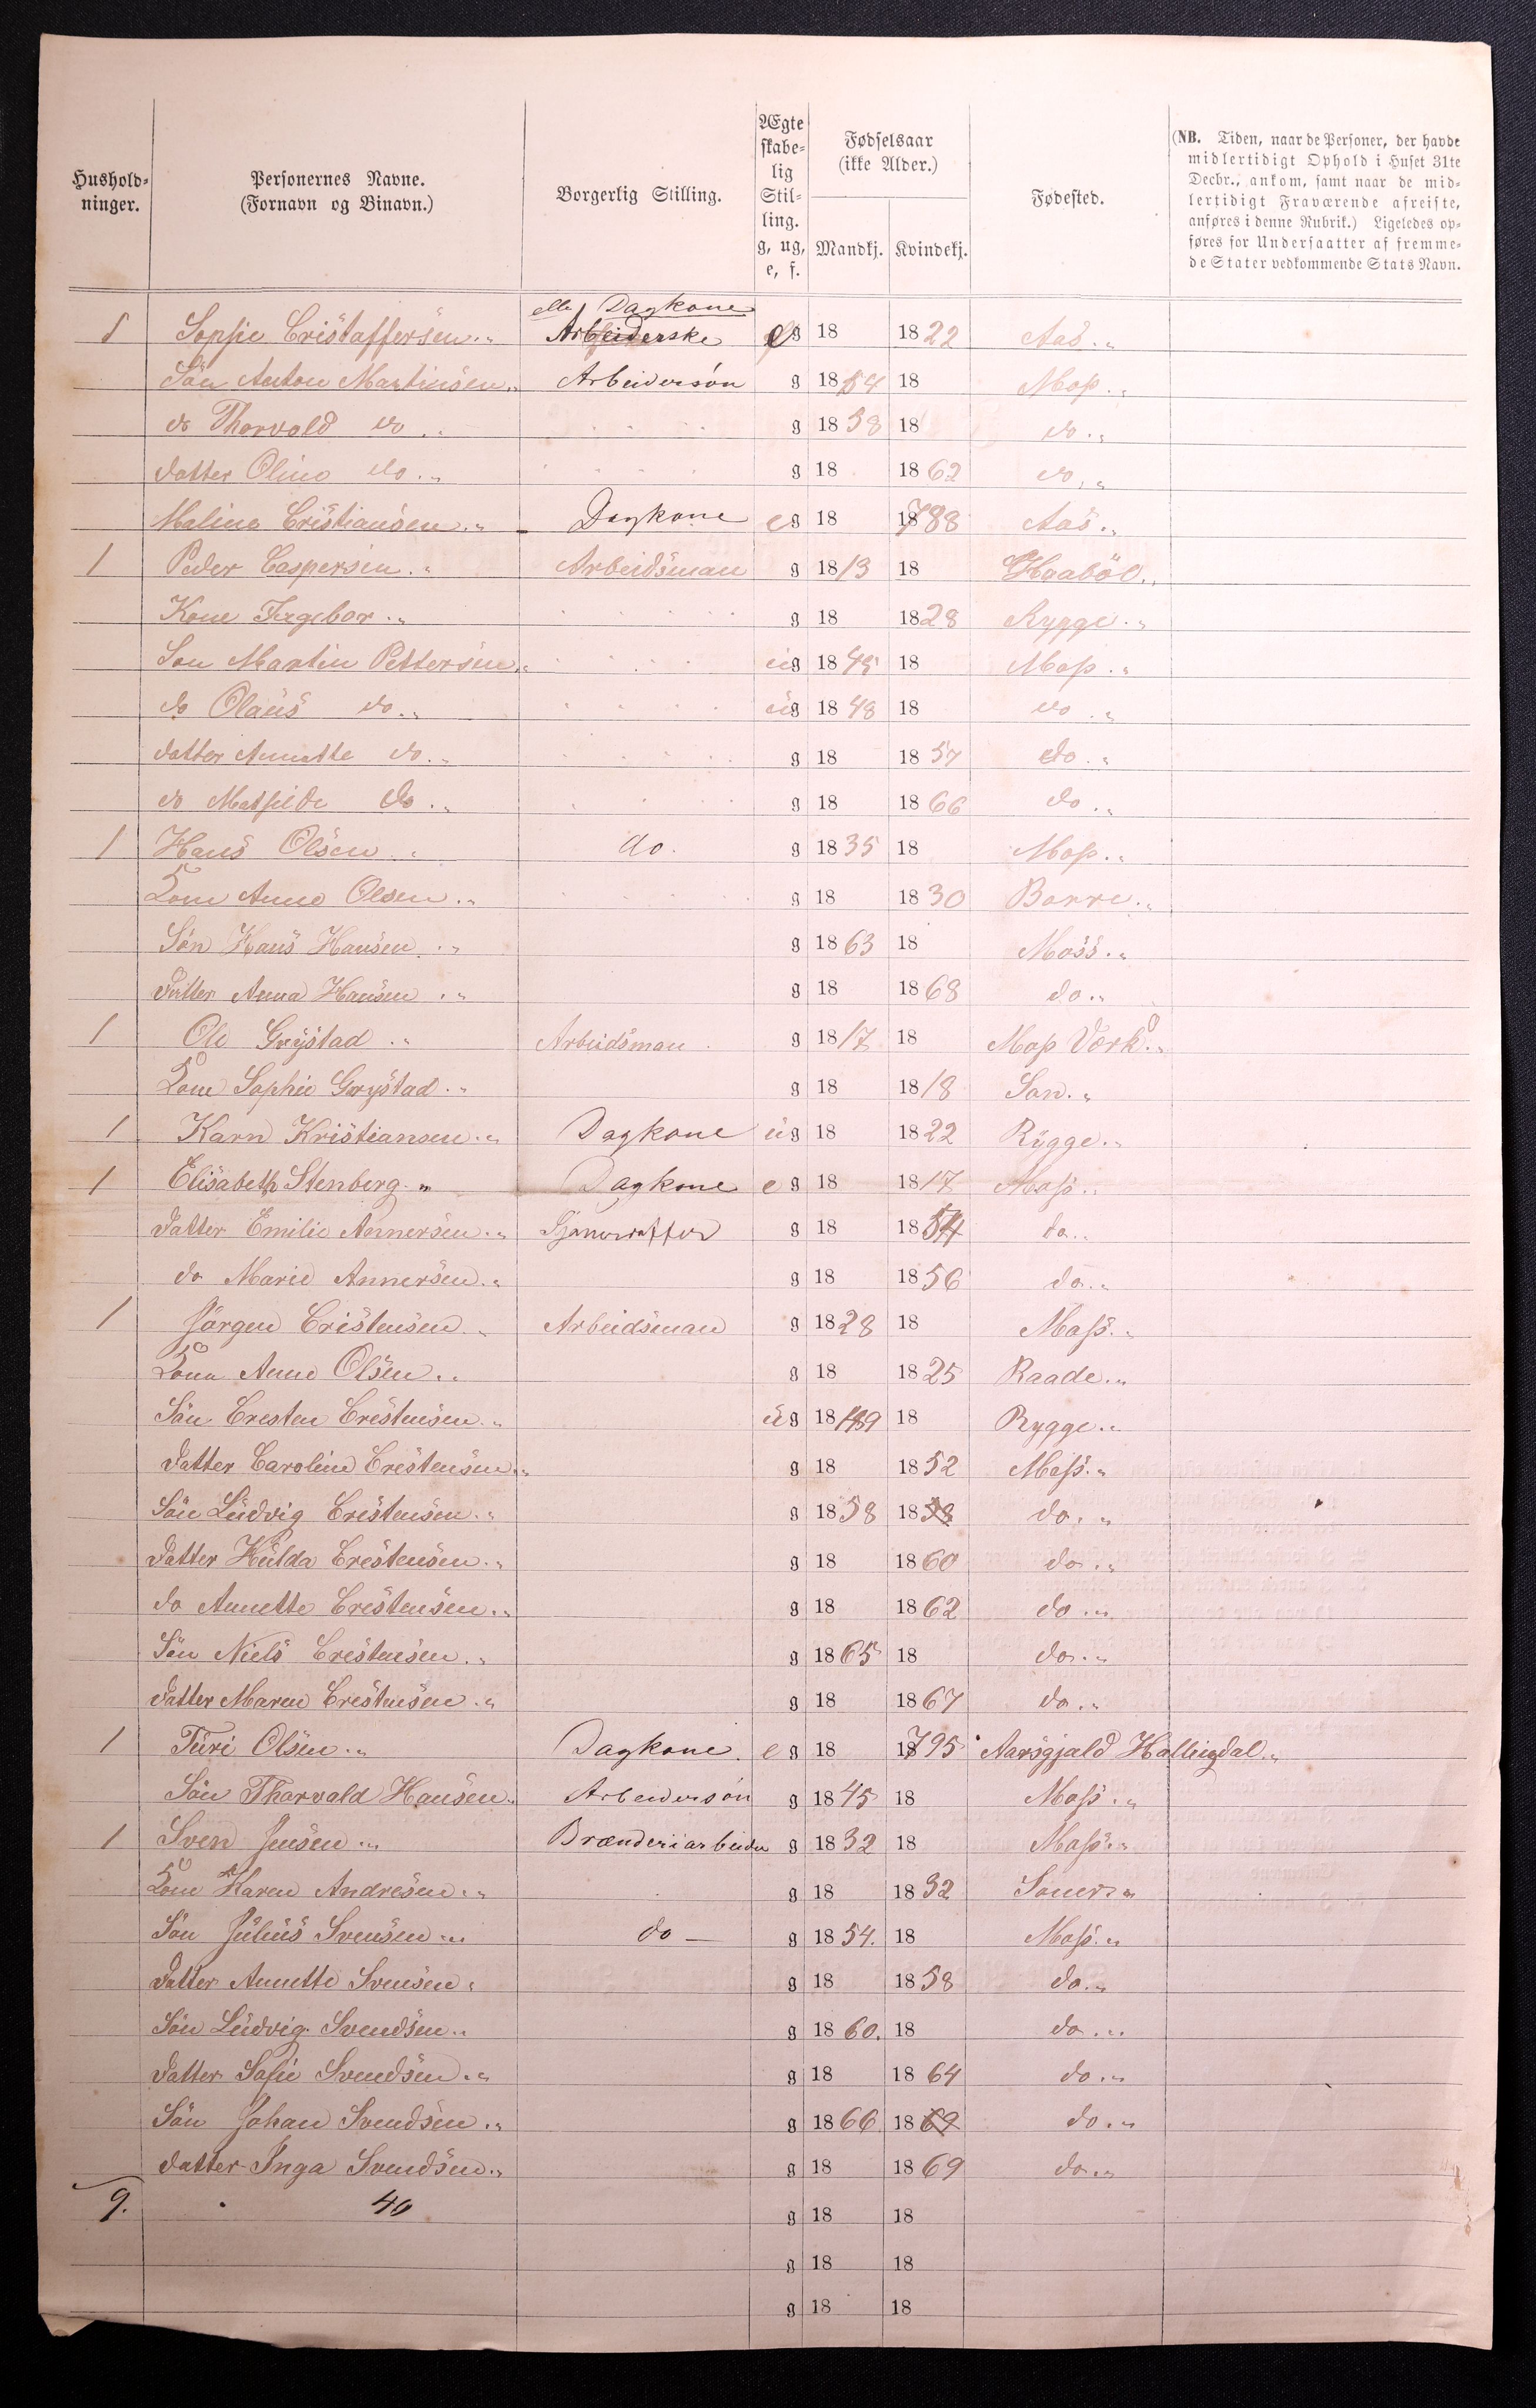 Hushold-
ninger.
Personernes Navne.
(Fornavn og Binavn.)
Borgerlig Stilling.
Ægte
skabe-
lig
Stil-
ling.
g, ug,
e, f.
Fødselsaar
(ikke Alder.)
Mandkj. Kvindekj.
Fødested.
(NB. Tiden, naar de Personer, der havde
midlertidigt Ophold i Huset 31te
Decbr., ankom, samt naar de mid-
lertidigt Fraværende afreiste,
anføres i denne Rubrik.) Ligeledes op-
føres for Undersaatter af fremme-
de Stater vedkommende Stats Navn.
Dagkone
1 Sopfie Cristaffersen Arbeiderske g 18 1822 Aas
Sön Anton Martinsen Arbeidersön g 1854 18 Moss
do Thorvald do g 1858 18 do
datter Oline do g 18 1862 do
Maline Cristiansen Dagkone eg 18 1788 Aas
1 Peder Caspersen Arbeidsman g 1813 18 Haaböl
Kone Ingebor g 18 1828 Rygge
Son Martin Pettersen ug 1845 18 Moss
do Olaus do ug 1848 18 do
datter Annette do g 18 1857 do
do Matfilde do g 18 1866 do
1 Hans Olsen do. g 1835 18 Moss
Kone Anne Olsen g 18 1830 Borre
Sön Hans Hansen g 1863 18 Moss
Datter Anna Hansen g 18 1868 do
1 Ole Grystad Arbeidsman g 1817 18 Moss Værk
Kone Sophie Grystad g 18 1818 Son
1 Karn Kristiansen Dagkone ug 18 1822 Rygge
1 Elisabeth Stenberg Dagkone eg 18 1817 Moss
Datter Emilie Annersen g 18 1854 do
do Marie Annersen g 18 1856 do
1 Jörgen Cristensen Arbeidsman g 1828 18 Moss
Kone Anne Olsen g 18 1825 Raade
Sön Cresten Crestensen ug 1849 18 Rygge
Datter Caroline Crestensen g 18 1852 Moss
Sön Ludvig Crestensen g 1858 1858 do
Datter Hulda Crestensen g 18 1860 do
do Annette Crestensen g 18 1862 do
Sön Niels Crestensen g 1865 18 do
Datter Maren Crestensen g 18 1867 do
1 Turi Olsen Dagkone eg 18 1795 Aarsgjald Hallingdal
Sön Tharvald Hansen Arbeidersön g 1845 18 Moss
1 Sven Jensen Brænderiarbeider g 1832 18 Moss
Kone Karen Andresen g 18 1832 Soner
Sön Julius Svensen do g 1854. 18 Moss
Datter Annette Svensen g 18 1858 do
Sön Ludvig Svendsen g 1860. 18 do
Datter Safie Svendsen g 18 1864 do
Sön Johan Svendsen g 1866 1869 do
datter Inga Svendsen g 18 1869 do
9. 40 g 18 18
g 18 18
g 18 18